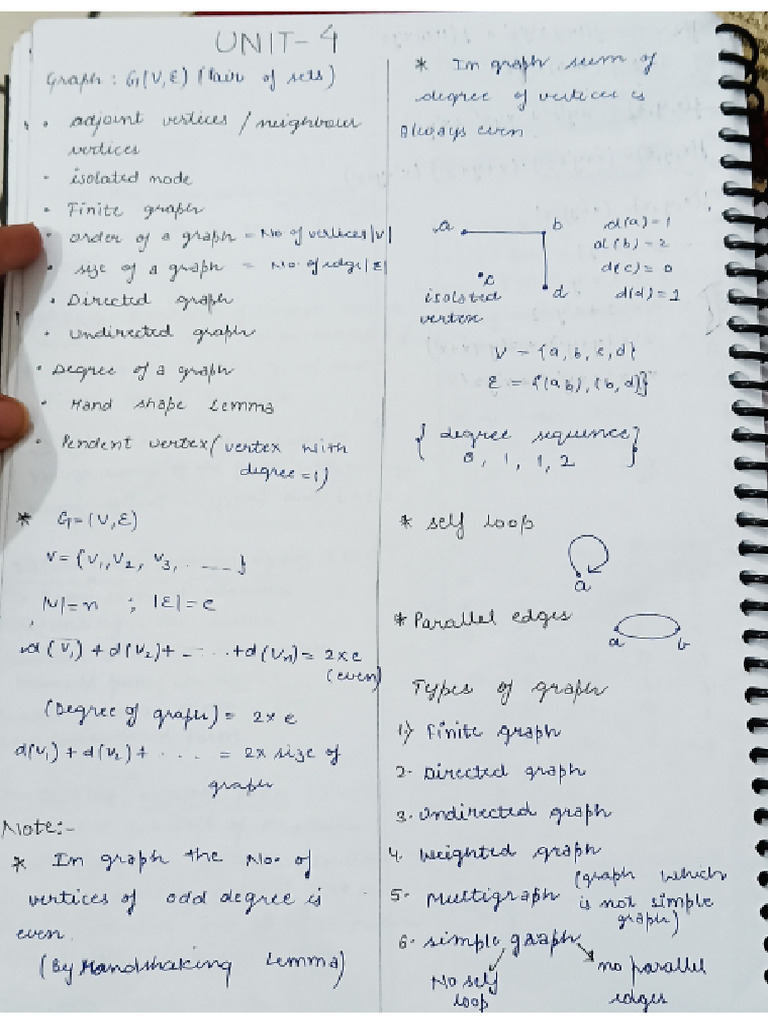 UNIT-4
Graph : G(V,E) (Pair of sets)
• adjoint vertices / neighbour
vertices
• isolated node
• Finite graph
• order of a graph = No of vertices |V|
• size of a graph = No. of edge |E|
• Directed graph
• undirected graph
• Degree of a graph
• Hand shape Lemma
• Pendent vertex / (vertex with
degree = 1)
* G = (V, E)
V = {V1, V2, V3, ....}
|V| = n ; |E| = e
d(V1) + d(V2) + ..... + d(Vn) = 2xe
(even)
(Degree of graph) = 2x e
d(V1) + d(V2) + .... = 2x size of
graph
Note:-
* In graph the No. of
vertices of odd degree is
even.
(By Handshaking Lemma)
* In graph sum of
degree of vertices is
Always even.
a b d(a) = 1
d(b) = 2
c d(c) = 0
isolated d d(d) = 1
vertex
V = {a, b, c, d}
E = {(a b), (b, d)}
{ degree sequence }
0, 1, 1, 2
* self loop
a
* Parallel edges
a b
Types of graph
1) Finite graph
2. Directed graph
3. Undirected graph
4. Weighted graph
5. Multigraph (graph which
is not simple
graph)
6. simple graph
No self no parallel
loop edges